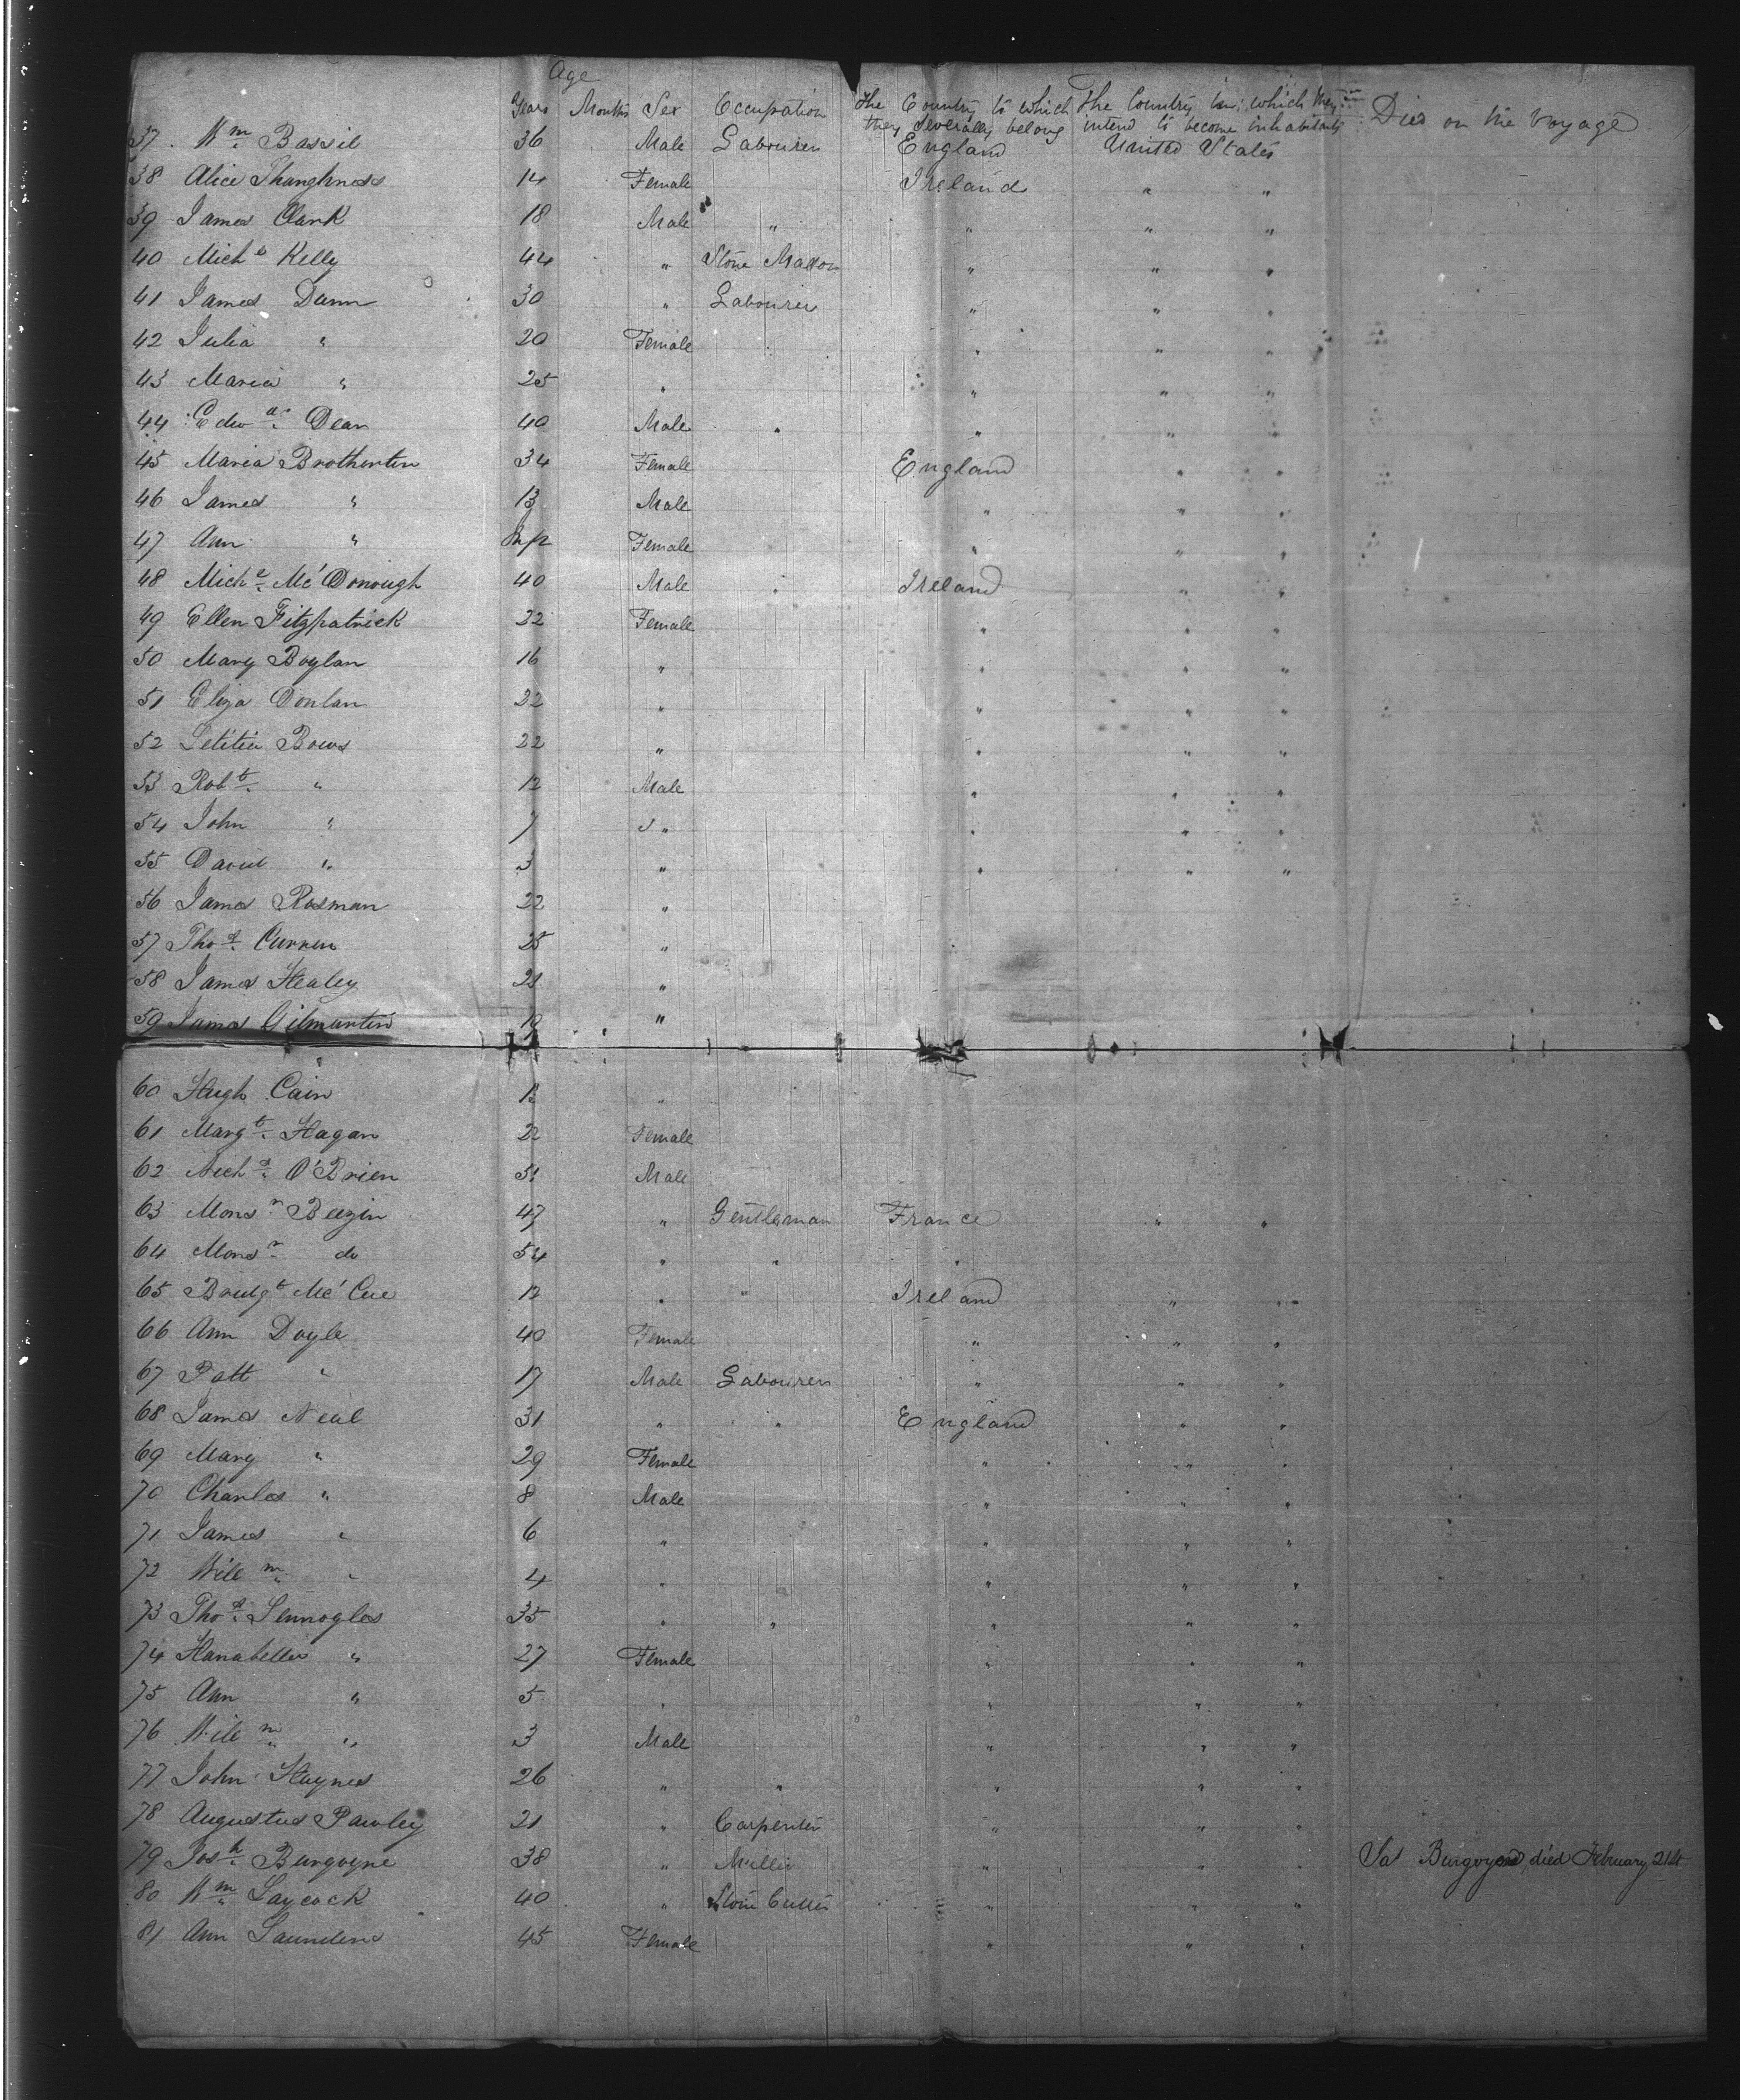 Age
Years Months Sex Occupation The Country to which they severally belong The Country in which they intend to become inhabitants Died on the Voyage
37 Wm Bassil 36 Male Labourer England United States
38 Alice Shaughness 14 Female Ireland " "
39 James Clark 18 Male " " " "
40 Michl Kelly 44 " Stone Mason " " "
41 James Dunn 30 " Labourer " " "
42 Julia " 20 Female " " "
43 Maria " 25 " " " "
44 Edwd Dean 40 Male " " " "
45 Maria Brotherton 34 Female England " "
46 James " 13 Male " " "
47 Ann " Inft Female " " "
48 Michl Mc'Donough 40 Male " Ireland " "
49 Ellen Fitzpatrick 22 Female " " "
50 Mary Boylan 16 " " " "
51 Eliza Donlan 22 " " " "
52 Letitia Bows 22 " " " "
53 Robt " 12 Male " " "
54 John " 7 " " " "
55 David " 3 " " " "
56 James Rosman 22 "
57 Thos Curren 25 "
58 James Healey 21 "
59 James Gilmartin 19 "
60 Hugh Cain 13 "
61 Margt Hagan 22 Female
62 Michl O'Brien 51 Male
63 Monsr Beezin 47 " Gentleman France " "
64 Monsr do 54 " " "
65 Bridgt Mc'Cue 12 " " Ireland " "
66 Ann Doyle 40 Female " " "
67 Patt " 17 Male Labourer " " "
68 James Neal 31 " " England " "
69 Mary " 29 Female " " "
70 Charles " 8 Male " " "
71 James " 6 " " " "
72 Willm " 4 " " " "
73 Thos Sennogles 35 " " " " "
74 Hanabella " 27 Female " " "
75 Ann " 5 " " " "
76 Willm " 3 Male " " "
77 John Haynes 26 " " " " "
78 Augustus Pawley 21 " Carpenter " " "
79 Josh Burgoyne 38 " Miller " " " Burgoyne died February 21st
80 Wm Laycock 40 " Stone Cutter " " "
81 Ann Saunders 45 Female " " "